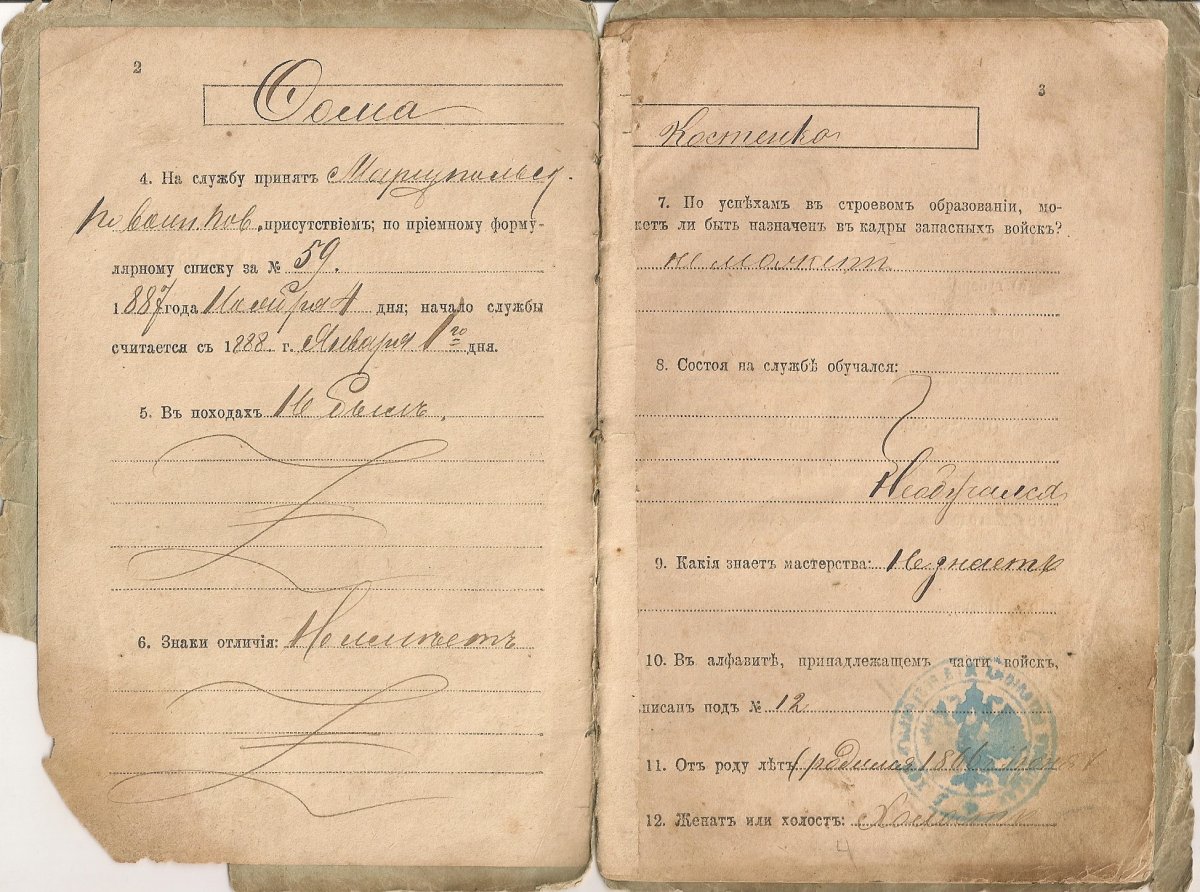 2
Ѳома
4. На службу принятъ Мариупольск.
по воин. пов. присутствіемъ; по пріемному форму-
лярному списку за № 59.
1887 года Ноября 4 дня; начало службы
считается съ 1888 г. Января 1го дня.
5. Въ походахъ Не былъ.
6. Знаки отличія: Не имѣетъ
3
Костенко
7. По успѣхамъ въ строевомъ образованіи, мо-
жетъ ли быть назначенъ въ кадры запасныхъ войскъ?
не можетъ
8. Состоя на службѣ обучался:
Необучался
9. Какія знаетъ мастерства: Не знаетъ
10. Въ алфавитѣ, принадлежащемъ части войскъ,
писанъ подъ № 12
11. Отъ роду лѣтъ (родился 1866 г.
12. Женатъ или холостъ: Холостъ